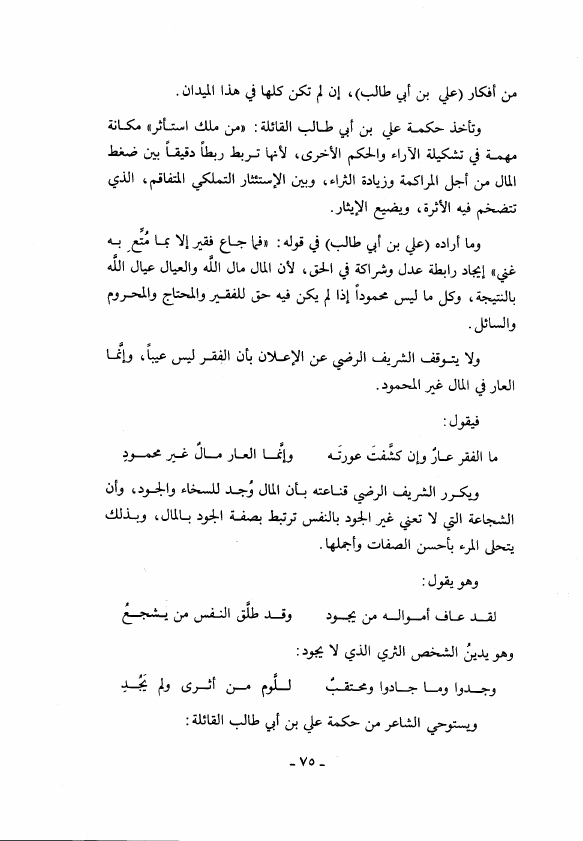 من أفكار (علي بن أبي طالب)، إن لم تكن كلها في هذا الميدان.
وتأخذ حكمة علي بن أبي طالب القائلة: «من ملك استأثر» مكانة
مهمة في تشكيلة الآراء والحكم الأخرى، لأنها تربط ربطاً دقيقاً بين ضغط
المال من أجل المراكمة وزيادة الثراء، وبين الإستئثار التملكي المتفاقم، الذي
تتضخم فيه الأثرة، ويضيع الإيثار.
وما أراده (علي بن أبي طالب) في قوله: «فما جاع فقير إلا بما مُتِّع به
غني» إيجاد رابطة عدل وشراكة في الحق، لأن المال مال اللَّه والعيال عيال اللَّه
بالنتيجة، وكل ما ليس محموداً إذا لم يكن فيه حق للفقير والمحتاج والمحروم
والسائل.
ولا يتوقف الشريف الرضي عن الإعلان بأن الفقر ليس عيباً، وإنَّما
العار في المال غير المحمود.
فيقول:
ما الفقر عارٌ وإن كشَّفتَ عورتَه وإنَّما العار مالٌ غير محمودِ
ويكرر الشريف الرضي قناعته بأن المال وُجد للسخاء والجود، وأن
الشجاعة التي لا تعني غير الجود بالنفس ترتبط بصفة الجود بالمال، وبذلك
يتحلى المرء بأحسن الصفات وأجملها.
وهو يقول:
لقد عاف أمواله من يجود وقد طلَّق النفس من يشجعُ
وهو يدينُ الشخص الثري الذي لا يجود:
وجدوا وما جادوا ومحتقبٌ للَّوم من أثرى ولم يَجُدِ
ويستوحي الشاعر من حكمة علي بن أبي طالب القائلة:
ـ ٧٥ ـ